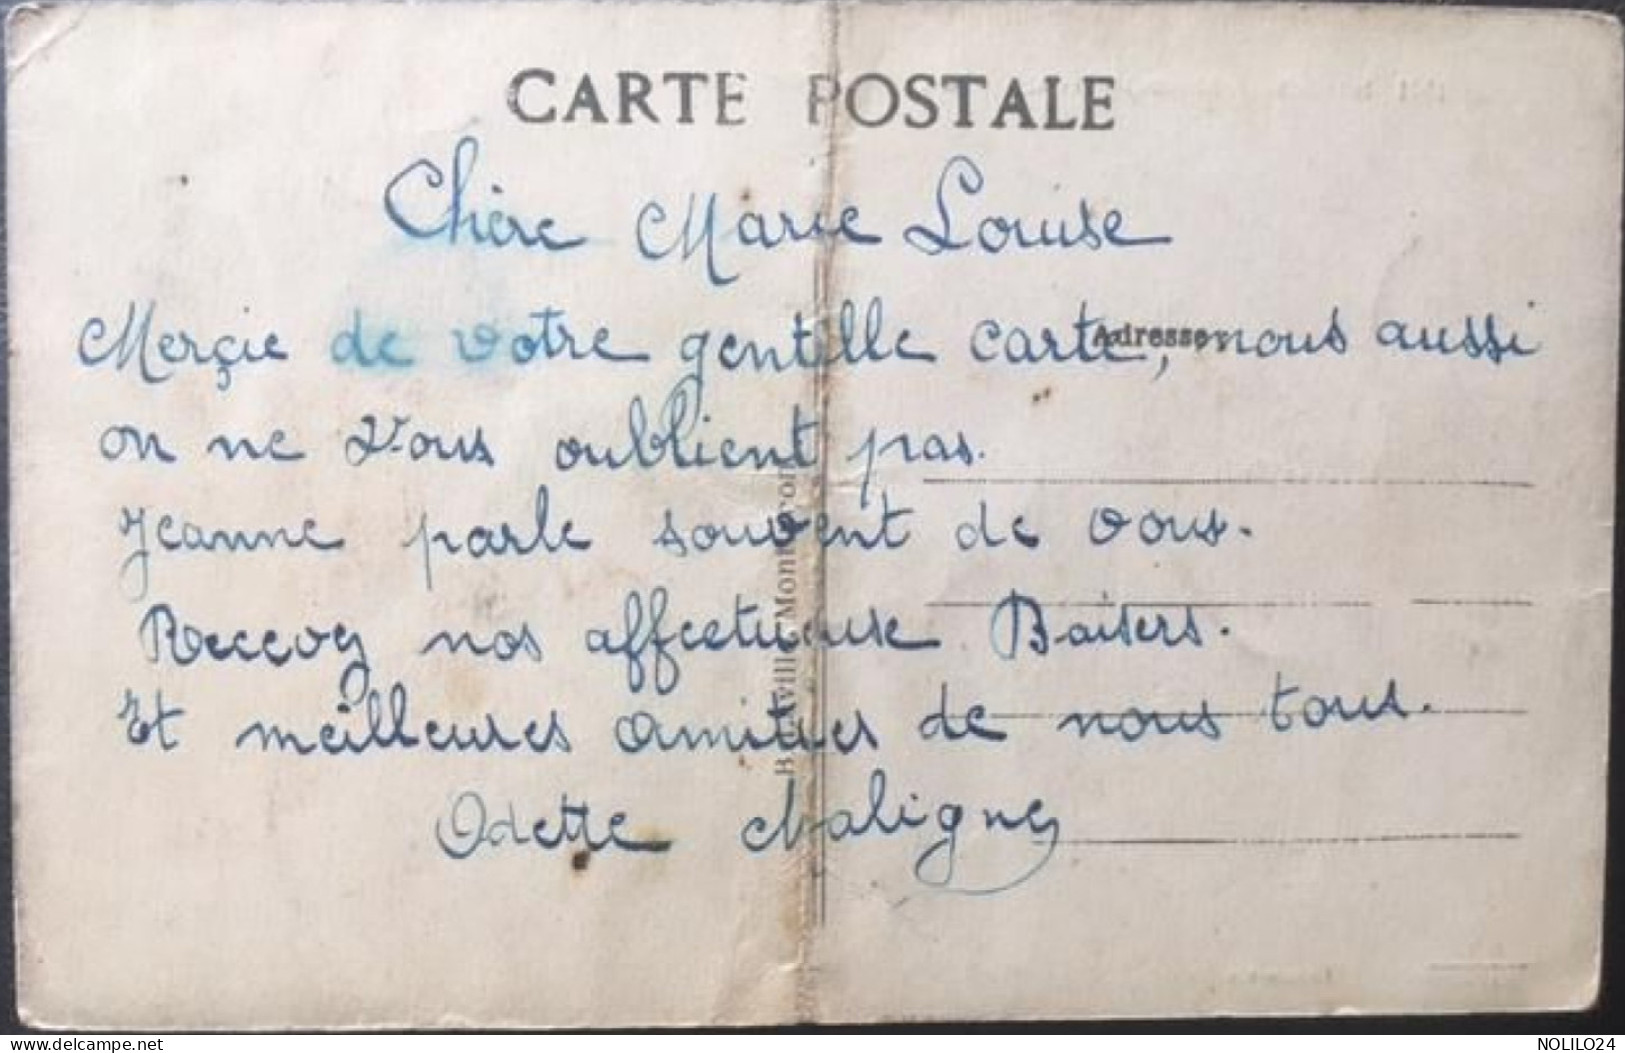 CARTE POSTALE
Chère Marie Louise
Merçie de votre gentille carte, nous aussi
Adresse
on ne vous oublient pas.
Jeanne parle souvent de vous.
Recevez nos affectueuse Baisers.
Et meilleures amities de nous tous.
Odette Maligne
delcampe.net
NOLILO24